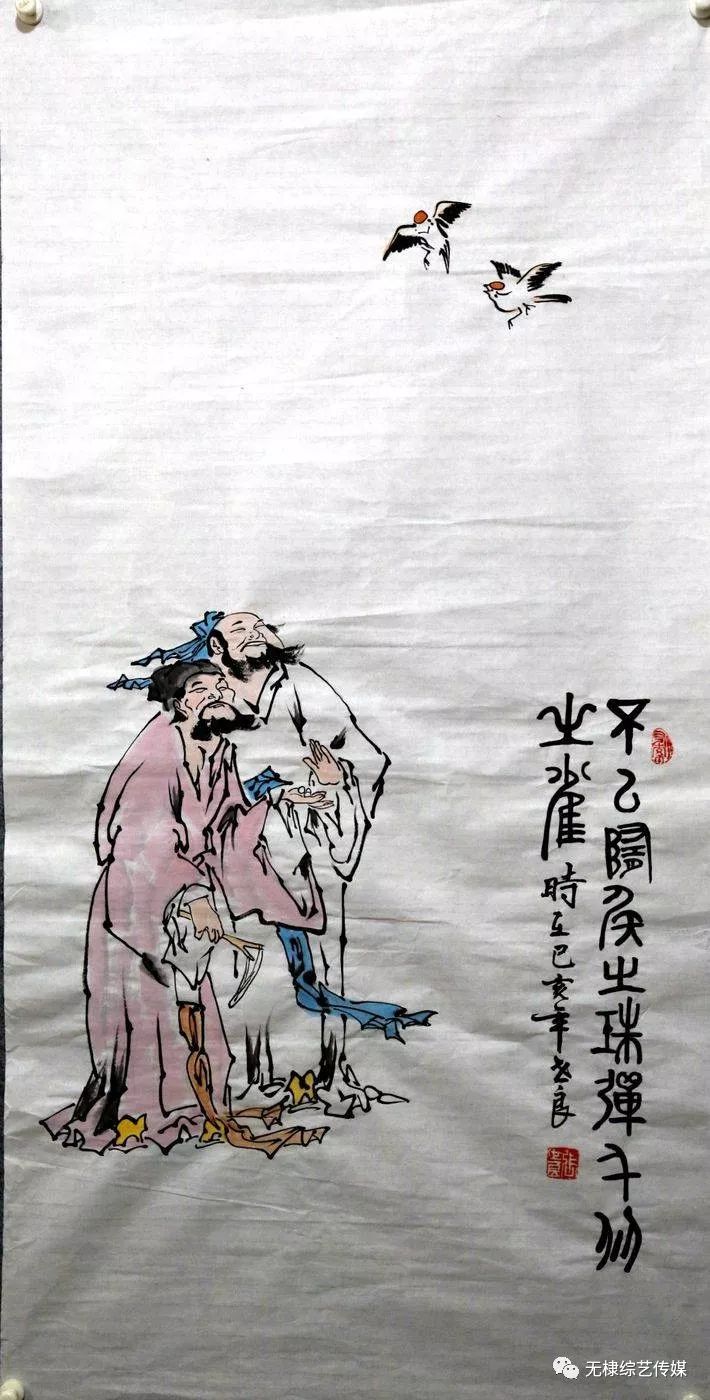 不㠯隋侯之珠彈千仞
之雀
時在己亥年老良
无棣综艺传媒